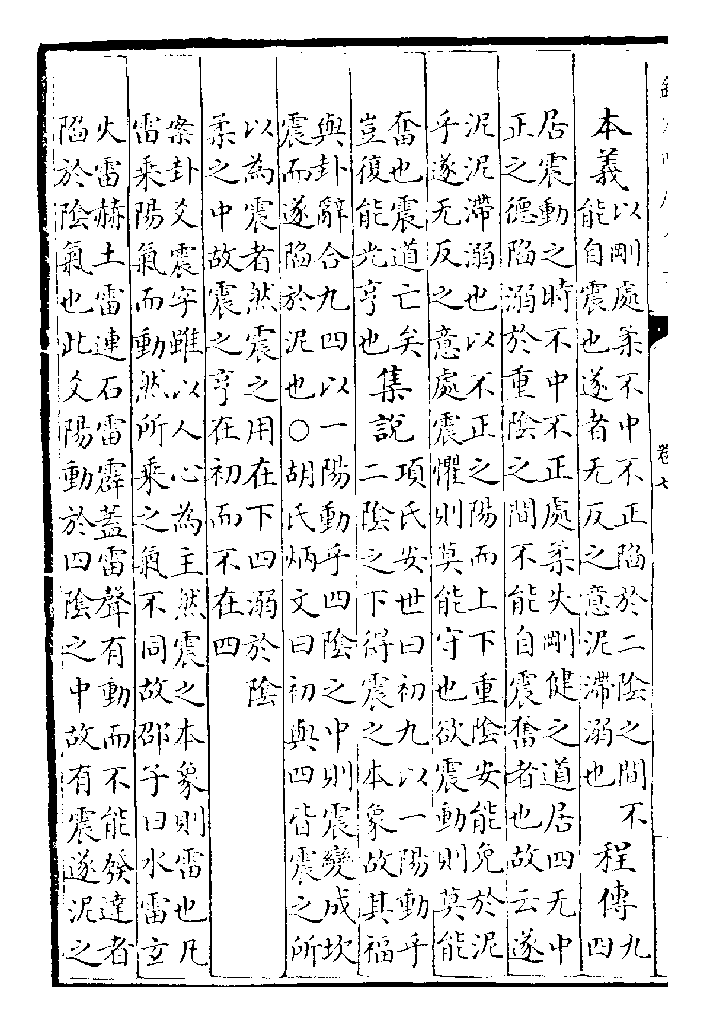 本義以剛處柔不中不正陷於二陰之間不
能自震也遂者无反之意泥滯溺也程傳九
四
居震動之時不中不正處柔失剛健之道居四无中
正之德陷溺於重陰之間不能自震奮者也故云遂
泥泥滯溺也以不正之陽而上下重陰安能免於泥
乎遂无反之意處震懼則莫能守也欲震動則莫能
奮也震道亡矣
豈復能光亨也集說項氏安世曰初九以一陽動乎
二陰之下得震之本象故其福
與卦辭合九四以一陽動乎四陰之中則震變成坎
震而遂陷於泥也○胡氏炳文曰初與四皆震之所
以為震者然震之用在下四溺於陰
柔之中故震之亨在初而不在四
案卦爻震字雖以人心為主然震之本象則雷也凡
雷乘陽氣而動然所乘之氣不同故邵子曰水雷玄
火雷赫土雷連石雷霹蓋雷聲有動而不能發達者
陷於陰氣也此爻陽動於四陰之中故有震遂泥之
卷七